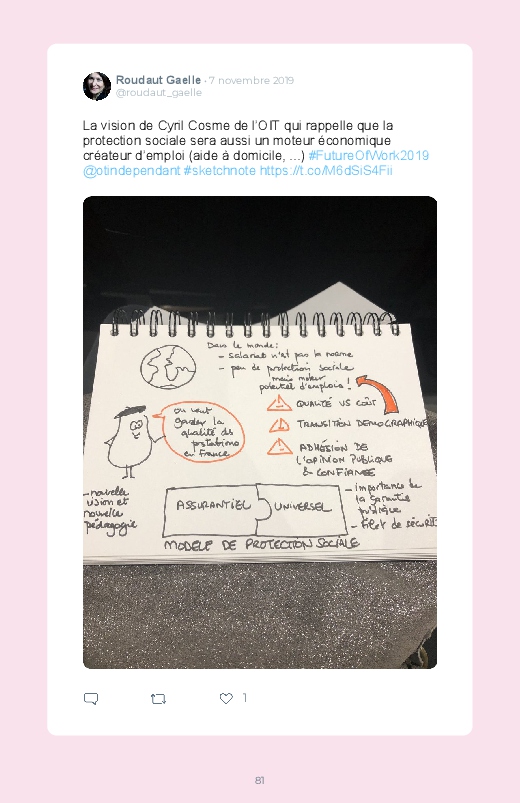 Roudaut Gaelle · 7 novembre 2019
@roudaut_gaelle
La vision de Cyril Cosme de l'OIT qui rappelle que la
protection sociale sera aussi un moteur économique
créateur d'emploi (aide à domicile, ...) #FutureOfWork2019
@otindependant #sketchnote https://t.co/M6dSiS4Fii
Dans le monde:
- salariat n'est pas la norme
- peu de protection sociale
mais moteur
potentiel d'emplois!
on veut
garder la
qualité des
prestations
en France
QUALITÉ VS COÛT
TRANSITION DEMOGRAPHIQUE
ADHÉSION DE
L'OPINION PUBLIQUE
& CONFIANCE
- nouvelle
vision et
nouvelle
pédagogie
ASSURANTIEL
UNIVERSEL
- importance de
la garantie
publique
- filet de sécurit
MODELE DE PROTECTION SOCIALE
1
81